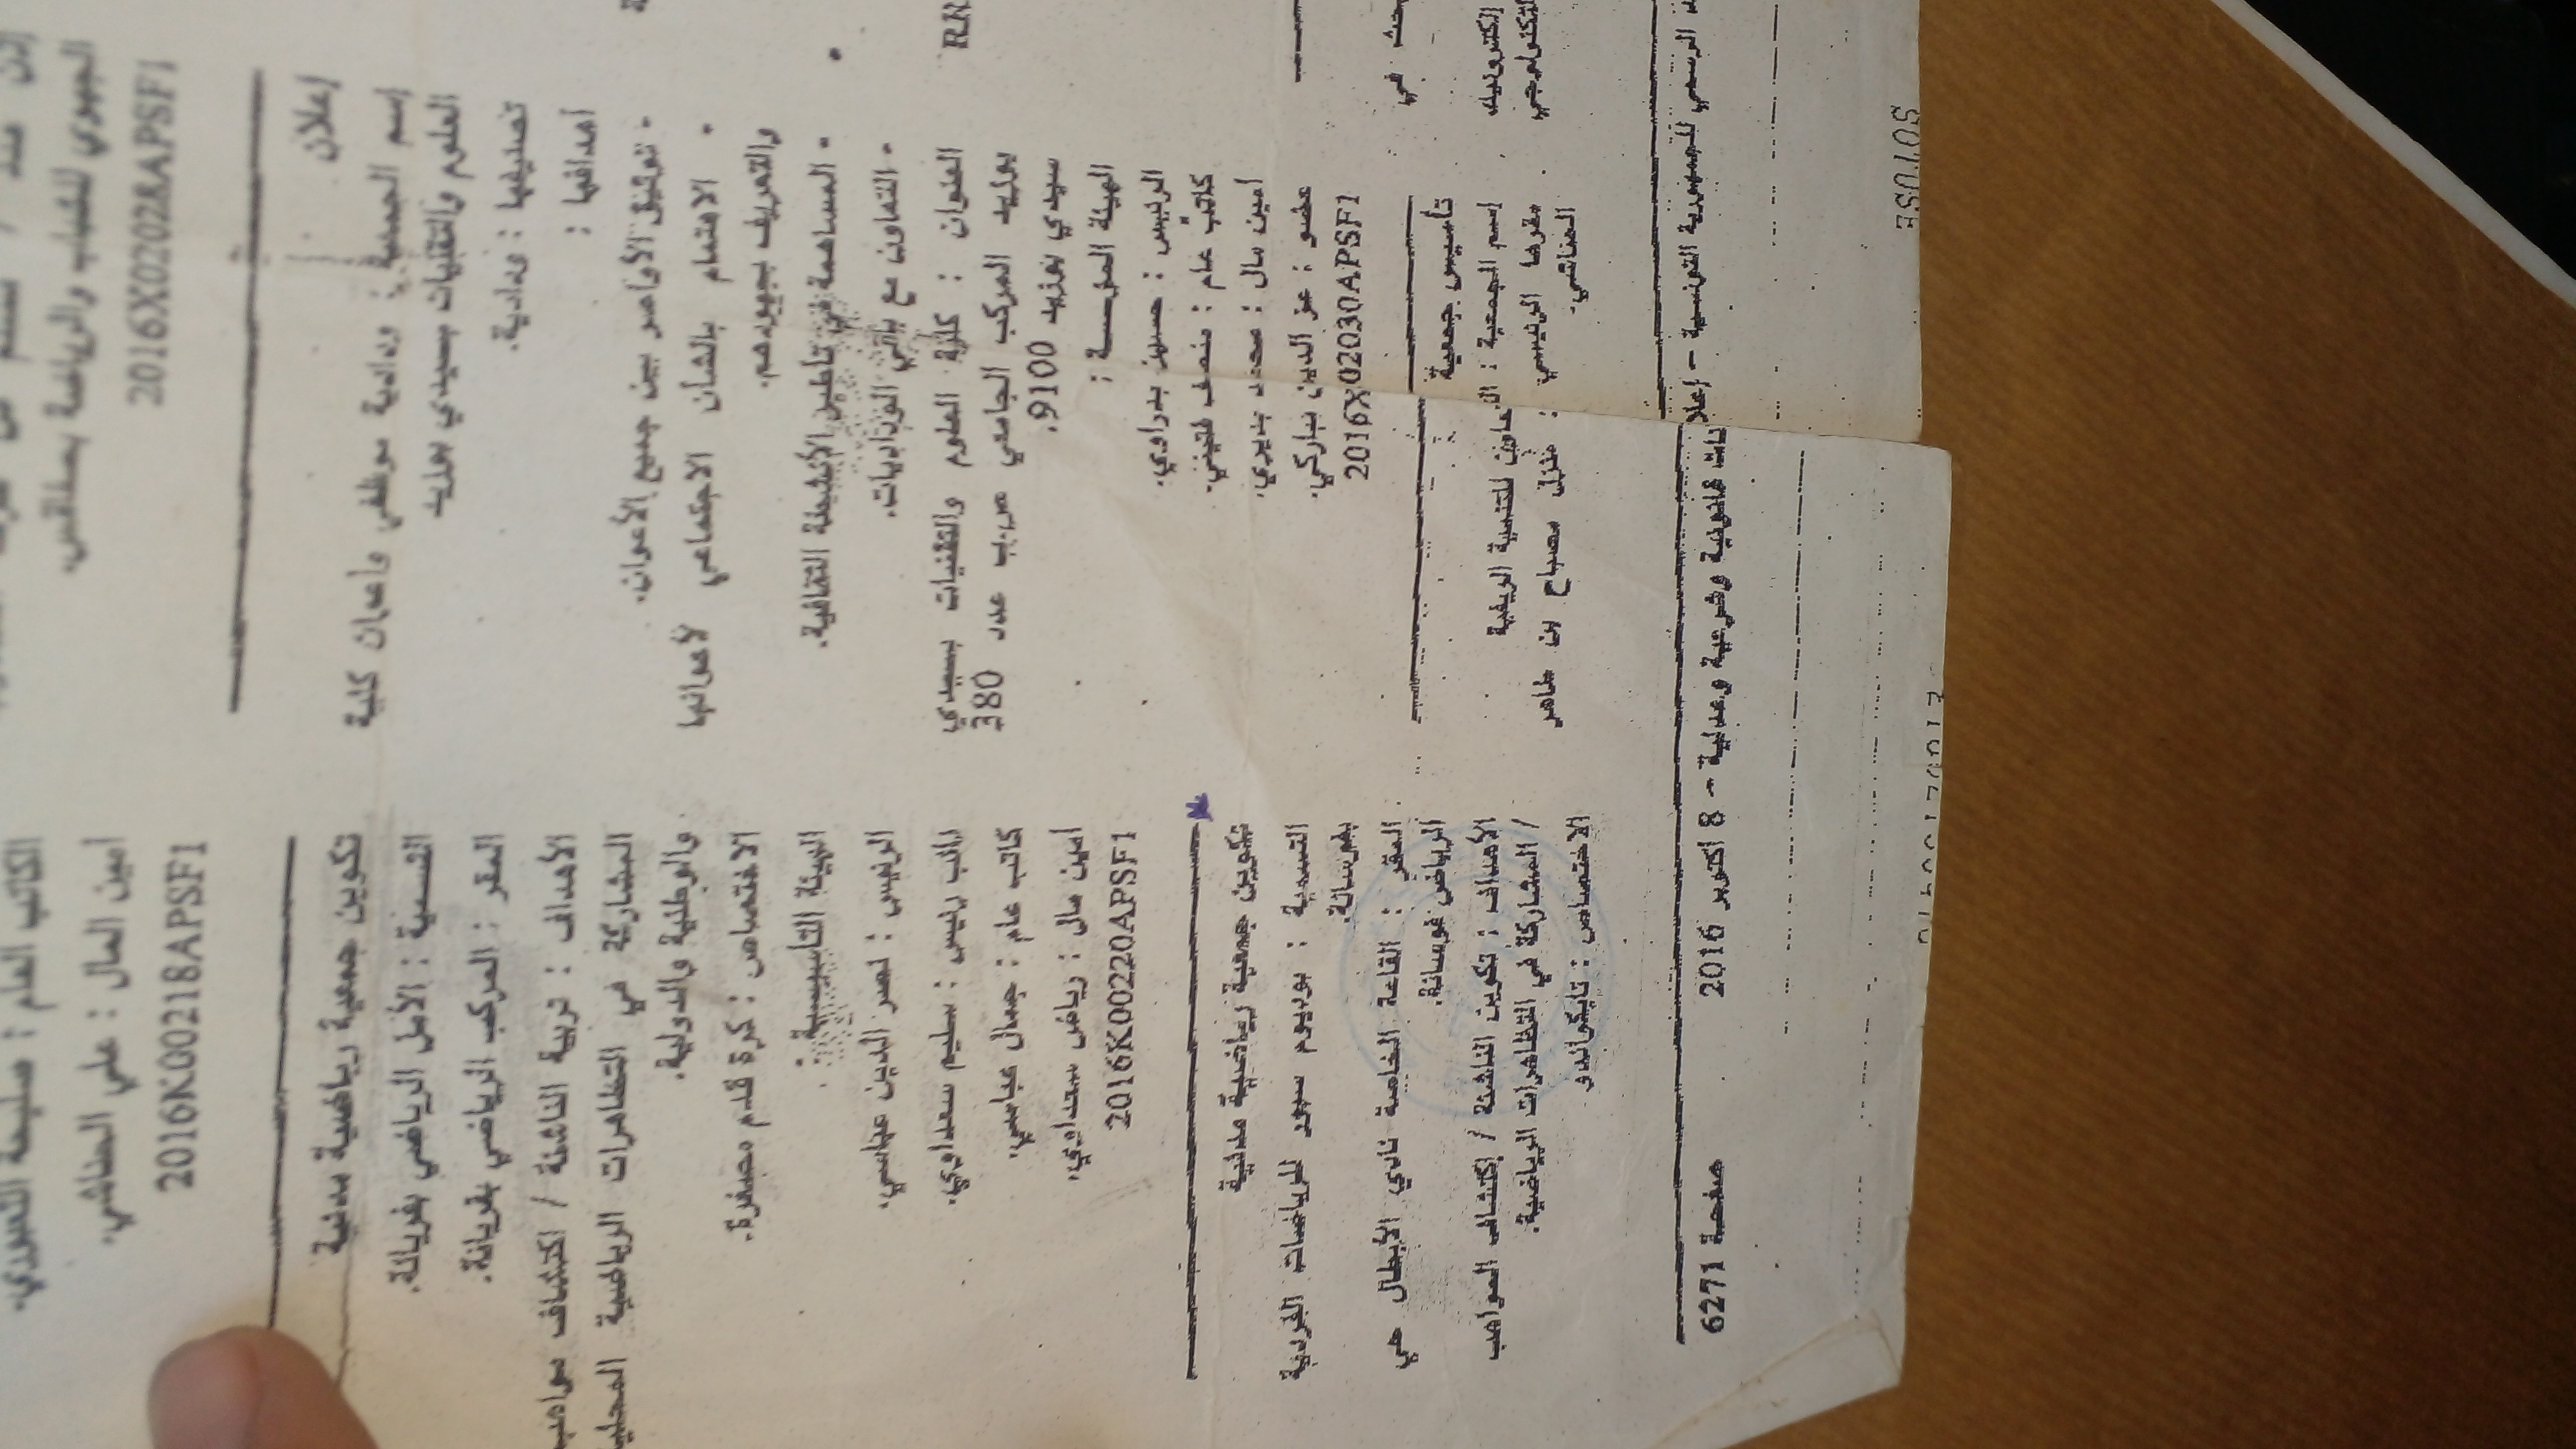 الجهوي للشباب والرياضة بصفاقس.
2016X02028APSF1
إعلان
إسم الجمعية : ودادية موظفي واعوان كلية
العلوم والتقنيات بسيدي بوزيد
تصنيفها : ودادية.
أهدافها :
- توثيق الأواصر بين جميع الأعوان.
- الاهتمام بالشأن الاجتماعي لأعوانها
والتعريف بجهودهم.
- المساهمة في تأطير الأنشطة الثقافية.
- التعاون مع باقي الوداديات.
العنوان : كلية العلوم والتقنيات بسيدي
بوزيد المركب الجامعي ص.ب عدد 380
سيدي بوزيد 9100.
الهيئة المؤسسة :
الرئيس : حسين بدراوي.
كاتب عام : منصف فتيتي.
امين مال : محمد بديري.
عضو : عز الدين نباركي.
2016X02030APSF1
تأسيس جمعية
إسم الجمعية : التعاون للتنمية الريفية
مقرها الرئيسي : منزل مصباح بن طاهر
المناشي.
الكاتب العام : صليحة
امين المال : علي الطاشي.
2016K00218APSF1
تكوين جمعية رياضية مدنية
التسمية : الأمل الرياضي بفريانة.
المقر : المركب الرياضي بفريانة.
الأهداف : تربية الناشئة / اكتشاف مواهب
المشاركة في التظاهرات الرياضية
والوطنية والدولية.
الاختصاص : كرة قدم مصغرة.
الهيئة التأسيسية :
الرئيس : نصر الدين عباسي.
نائب رئيس : سليم سعداوي.
كاتب عام : جمال عباسي.
امين مال : رياض سعداوي.
2016K00220APSF1
تكوين جمعية رياضية مدنية
التسمية : بوديوم سبور للرياضات الفردية
بفوسانة.
المقر : القاعة الخاصة نادي الأبطال حي
الرياض فوسانة.
الأهداف : تكوين الناشئة / إكتشاف المواهب
/ المشاركة في التظاهرات الرياضية.
الاختصاص : تايكواندو
RR
الرسمي للجمهورية التونسية – إعلانات قانونية وشرعية وعدلية – 8 اكتوبر 2016
صفحة 6271
SOTUSE